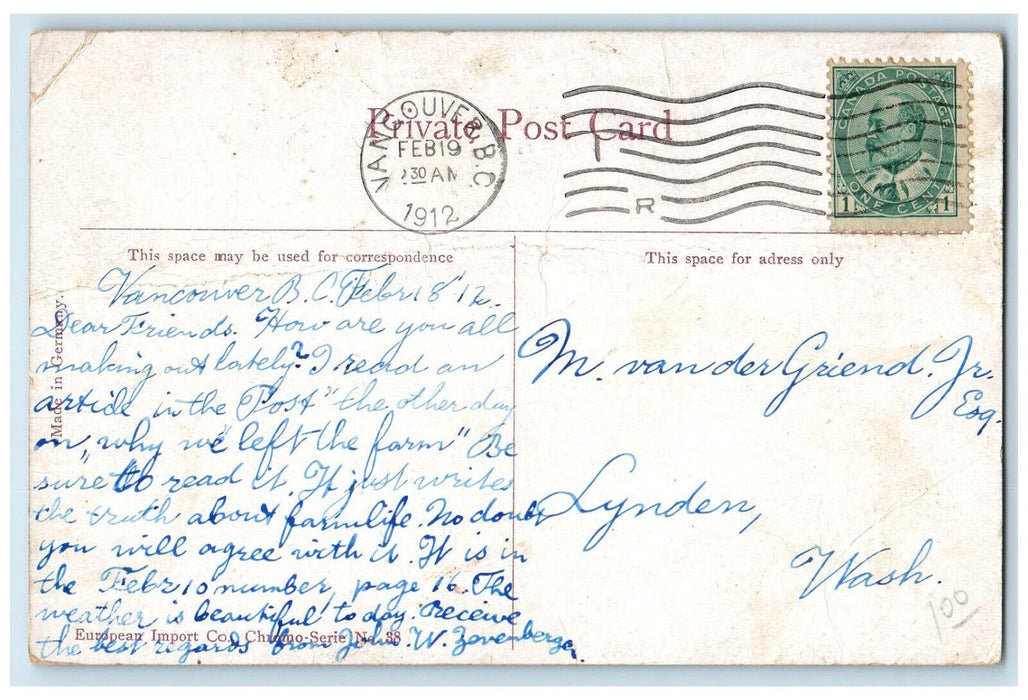 Private Post Card
VANCOUVER, B.C.
FEB 19
30 AM
1912
R
CANADA POSTAGE
1 ONE CENT 1
This space may be used for correspondence
This space for adress only
Made in Germany.
Vancouver B.C. Febr 18 '12.
Dear Friends. How are you all
making out lately? I read an
article in the "Post" the other day
on "why we left the farm" Be
sure to read it. It just writes
the truth about farmlife. No doubt
you will agree with it. It is in
the Febr 10 number, page 16. The
weather is beautiful to day. Receive
the best regards from John W.
European Import Co., Chromo-Serie No. 38
M. van der Griend. Jr.
Esq.
Lynden,
Wash.
100